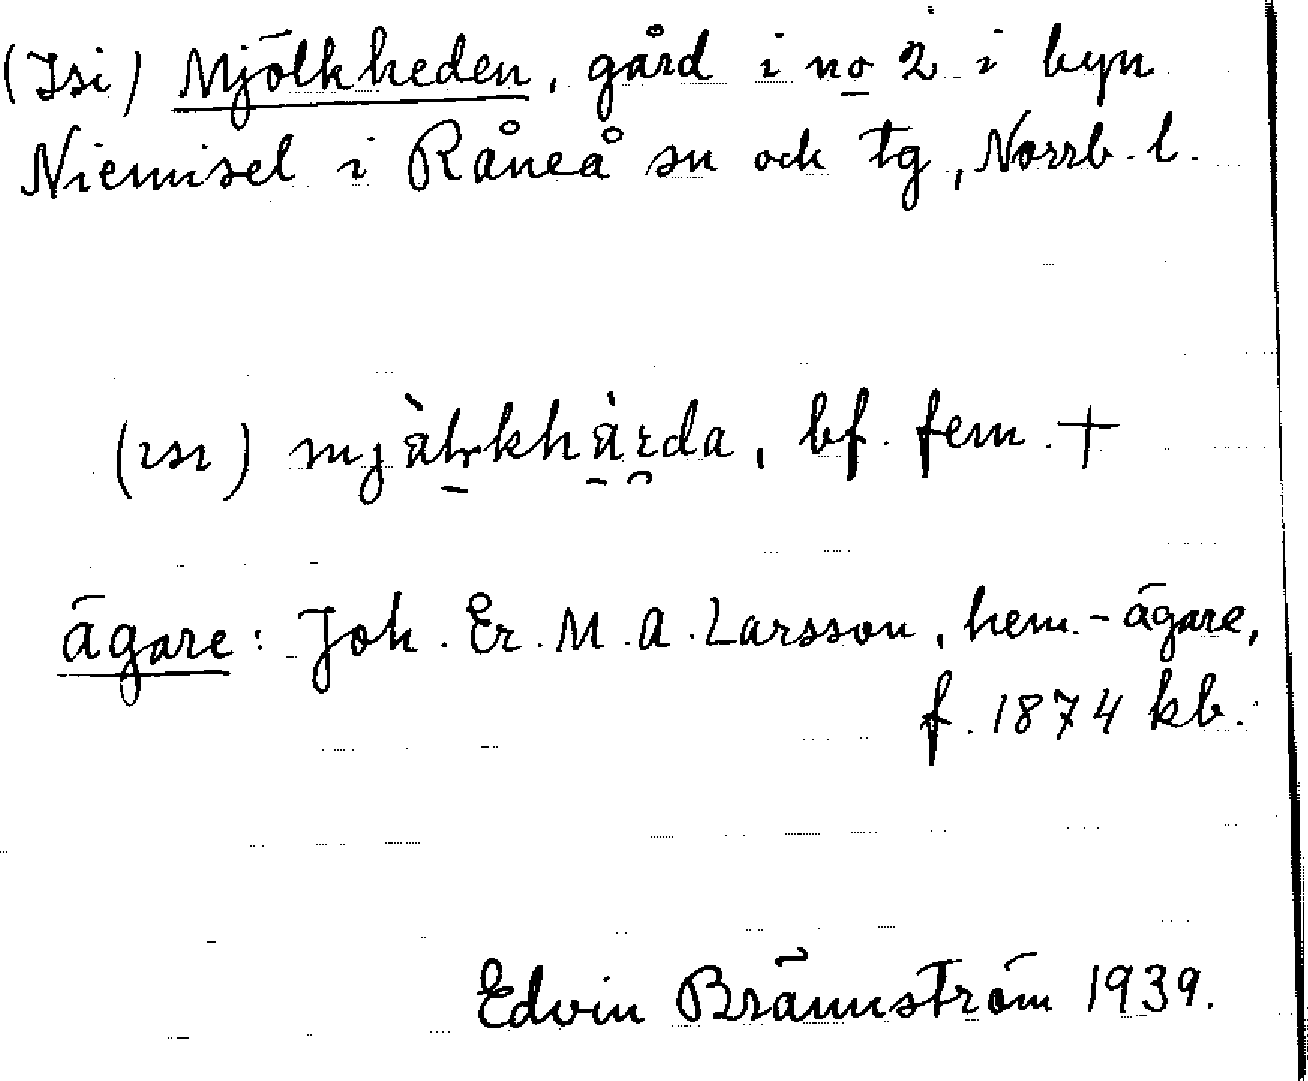 (Isi) Mjölkheden, gård i no 2 i byn
Niemisel i Råneå sn och tg, Norrb. l.
(ısı) mjàlrkhàrda, bf. fem. +
ägare: Joh. Er. M. A. Larsson, hem.-ägare,
f. 1874 kb.
Edvin Brännström 1939.